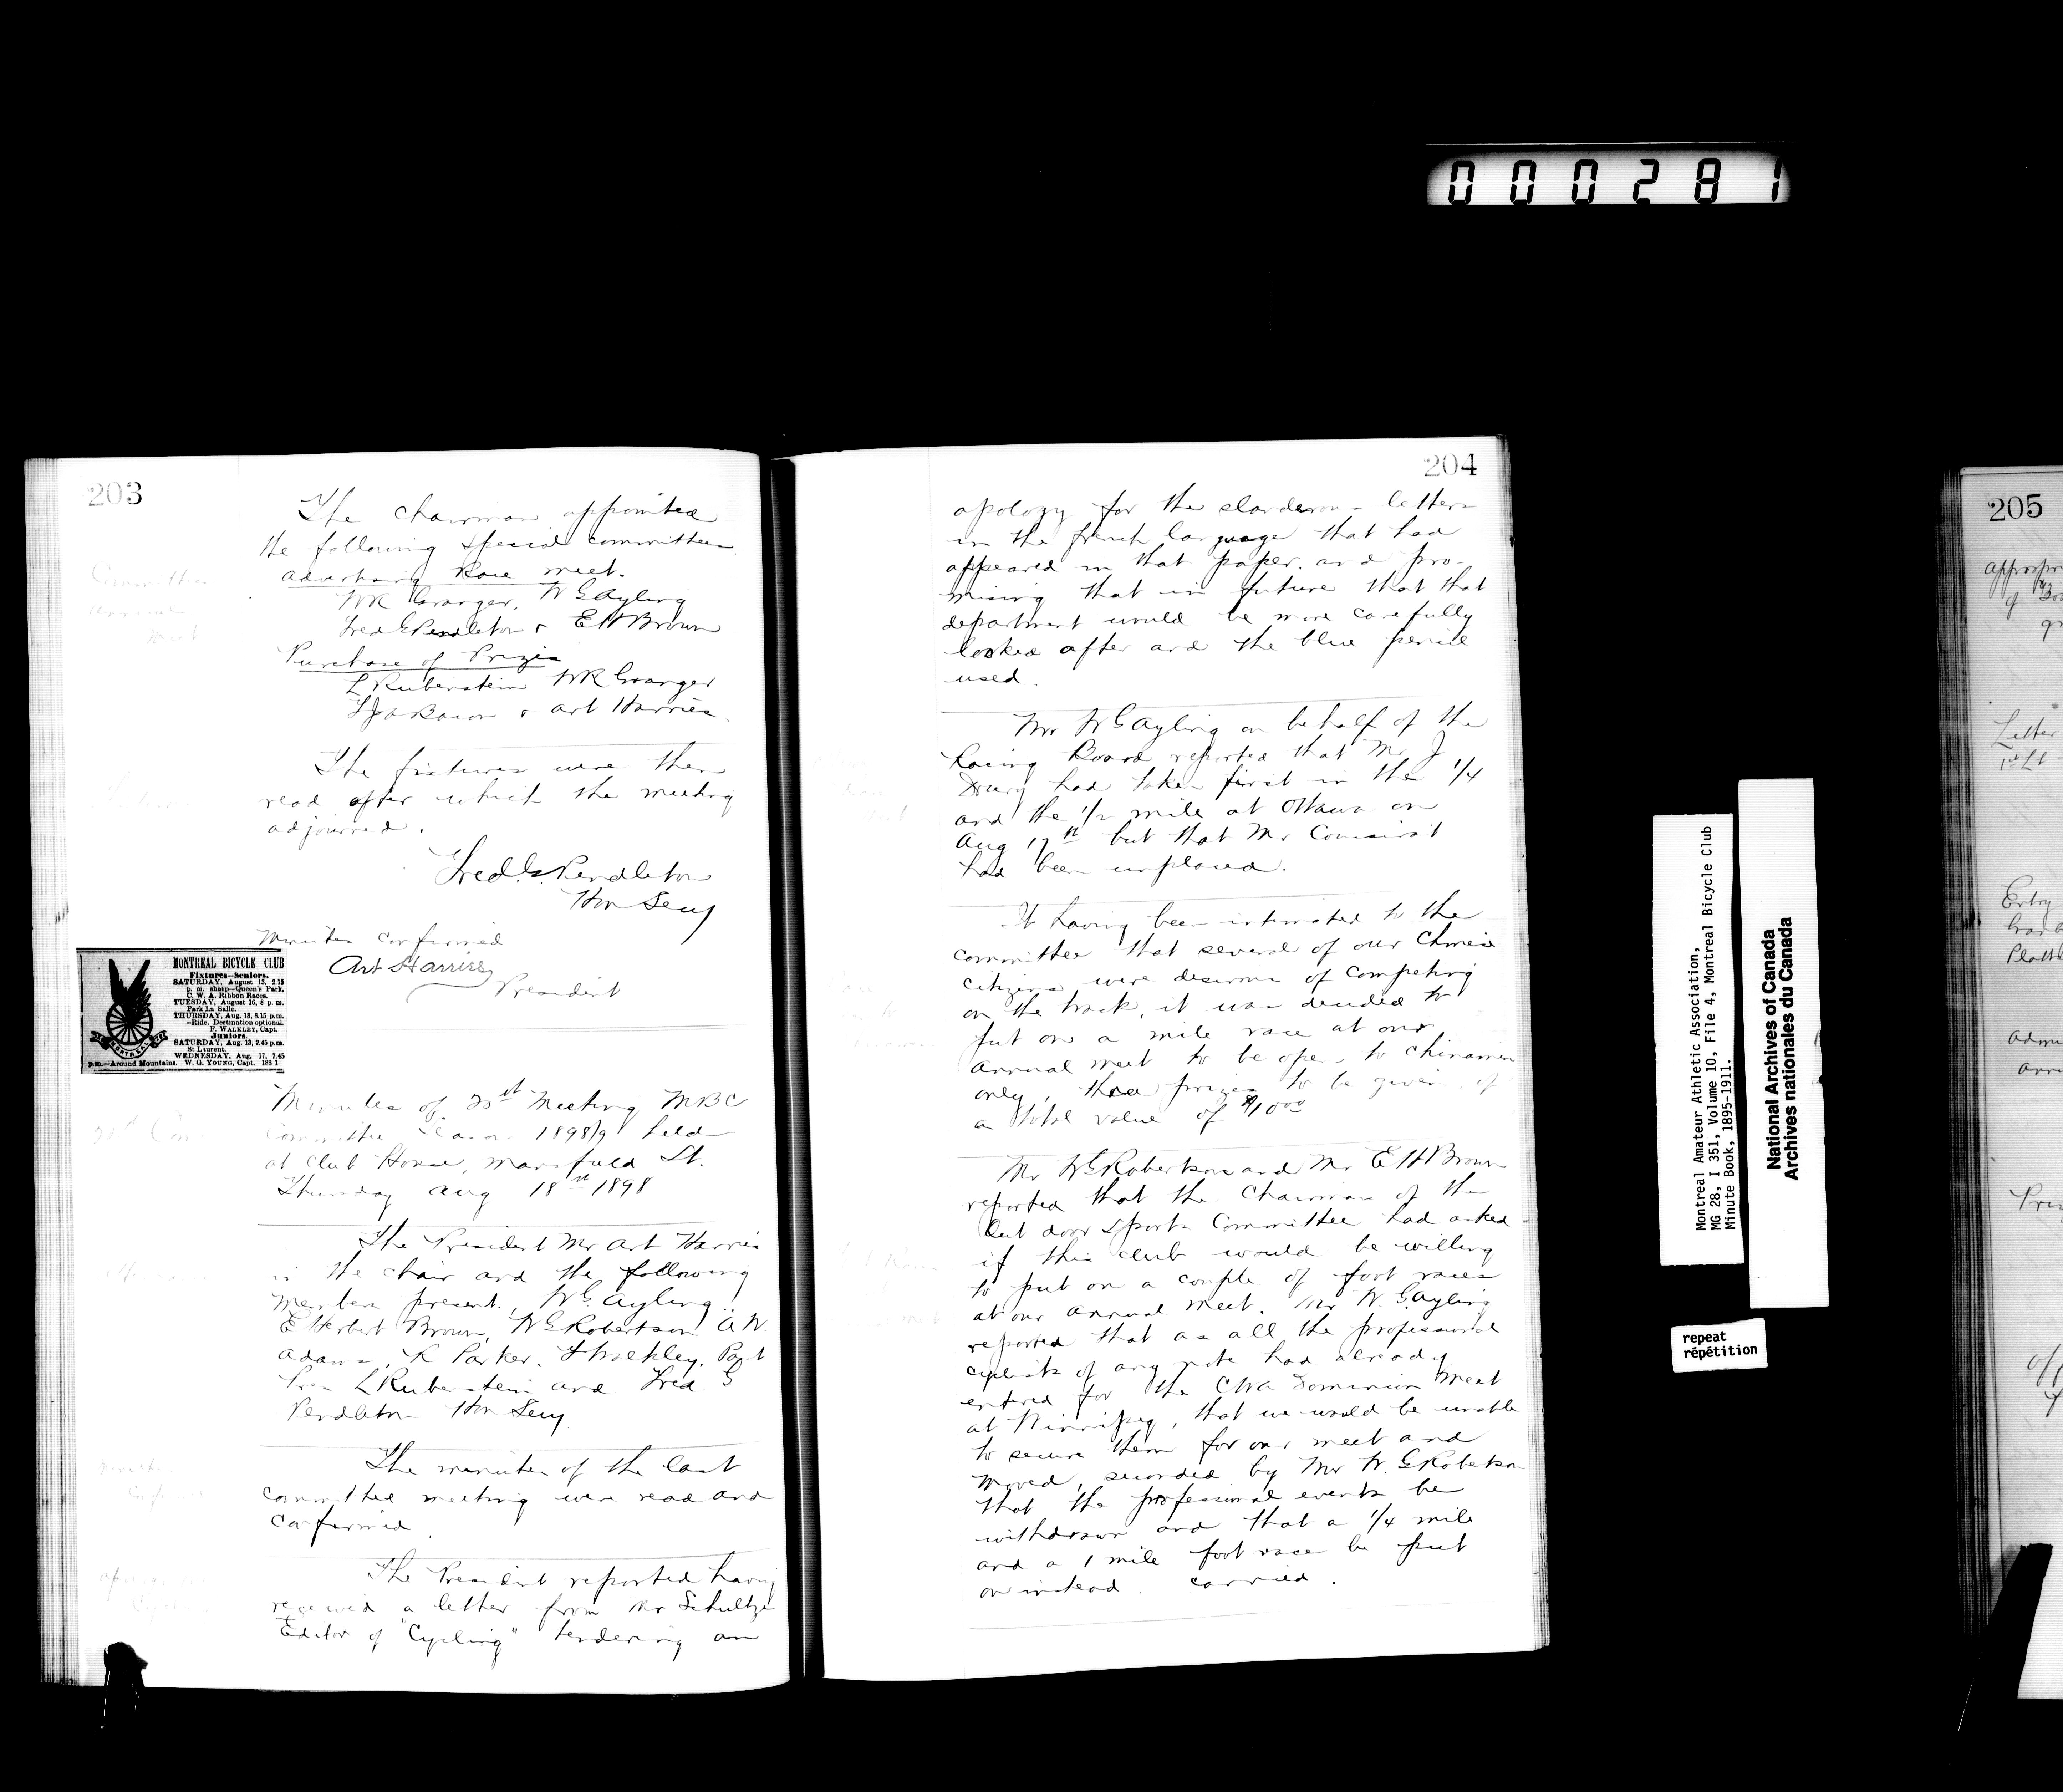 000281
203
The chairman appointed
the following special committees.
Advertising Race meet.
W R Granger, W G Ayling
Fred G Pendleton & E H Brown
Purchase of Prizes
L Rubenstein W R Granger
& Art Harries.
The fixtures were then
read after which the meeting
adjourned.
Fred. G. Pendleton
Hon Secy
Minutes confirmed
Art Harries
President
MONTREAL BICYCLE CLUB
Fixtures—Seniors.
SATURDAY, August 13, 2.15
p. m. sharp—Queen's Park,
C. W. A. Ribbon Races.
TUESDAY, August 16, 8 p. m.
Park La Salle.
THURSDAY, Aug. 18, 8.15 p.m.
—Ride. Destination optional.
F. WALKLEY, Capt.
Juniors.
SATURDAY, Aug. 13, 2.45 p.m.
St Laurent.
WEDNESDAY, Aug. 17, 7.45
p.m.—Around Mountains. W. G. YOUNG, Capt. 188 1
MONTREAL
Minutes of Meeting MBC
Committee 1898/9 held
at Club House, Mansfield St.
Thursday Aug 18 1898
The President Mr Art Harries
in the chair and the following
members present, W G. Ayling
E Herbert Brown, W G Robertson A W
Adams, K Parker, F Walkley, Past
Pres L Rubenstein and Fred G
Pendleton Hon Secy.
The minutes of the last
committee meeting were read and
confirmed.
The President reported having
received a letter from Mr Schultze
Editor of "Cycling" tendering an
204
apology for the slanderous letters
in the french language that had
appeared in that paper. and pro-
mising that in future that that
department would be more carefully
looked after and the blue pencil
used.
Mr W G Ayling on behalf of the
Racing Board reported that Mr J
Drury had taken first in the 1/4
and the 1/2 mile at Ottawa on
Aug 17th but that Mr
had been unplaced.
It having been intimated to the
committee that several of our Chinese
citizens were desirous of competing
on the track, it was decided to
put on a mile race at our
annual meet to be open to chinamen
only, three prizes to be given of
a total value of $10.00
Mr W G Robertson and Mr E H Brown
reported that the Chairman of the
Out door Sports Committee had asked
if this club would be willing
to put on a couple of foot races
at our annual meet. Mr W. G. Ayling
reported that as all the professional
cyclists of any note had already
entered for the CWA Dominion Meet
at Winnipeg, that we would be unable
to secure them for our meet and
moved, seconded by Mr W. G Robertson
that the professional events be
withdrawn and that a 1/4 mile
and a 1 mile foot race be put
on instead. carried.
Montreal Amateur Athletic Association,
MG 28, I 351, Volume 10, File 4, Montreal Bicycle Club
Minute Book, 1895-1911.
National Archives of Canada
Archives nationales du Canada
repeat
répétition
205
Letter
Entry